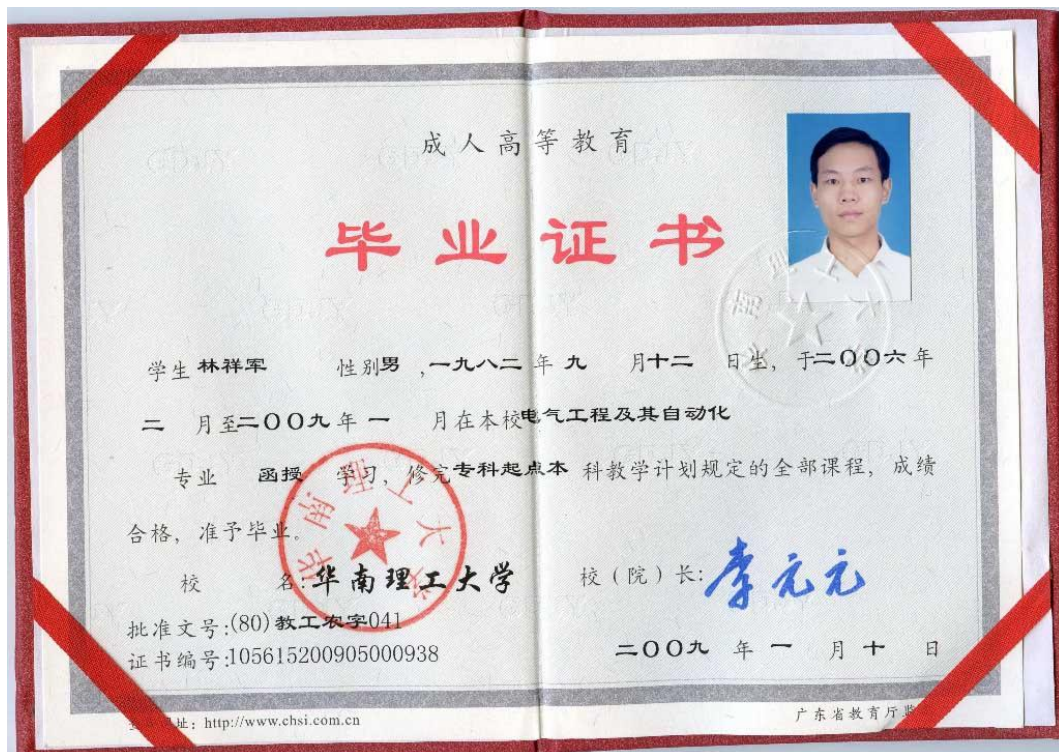 成人高等教育
毕业证书
学生 林祥军 性别男 ,一九八二 年 九 月十二 日生, 于二00六 年
二 月至二00九 年 一 月在本校电气工程及其自动化
专业 函授 学习, 修完专科起点本 科教学计划规定的全部课程, 成绩
合格, 准予毕业。
校 名:华南理工大学
校 (院) 长: 李元元
批准文号:(80) 教工农字041
证书编号:105615200905000938
二00九 年 一 月 十 日
址: http://www.chsi.com.cn
广东省教育厅监
华南理工大学
华南理工大学